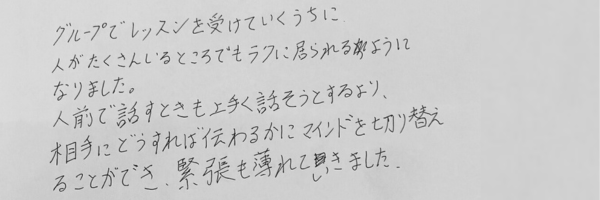 グループでレッスンを受けていくうちに
人がたくさんいるところでもラクに居られるように
なりました。
人前で話すときも上手く話そうとするより、
相手にどうすれば伝わるかにマインドを切り替え
ることができ、緊張も薄れていきました。